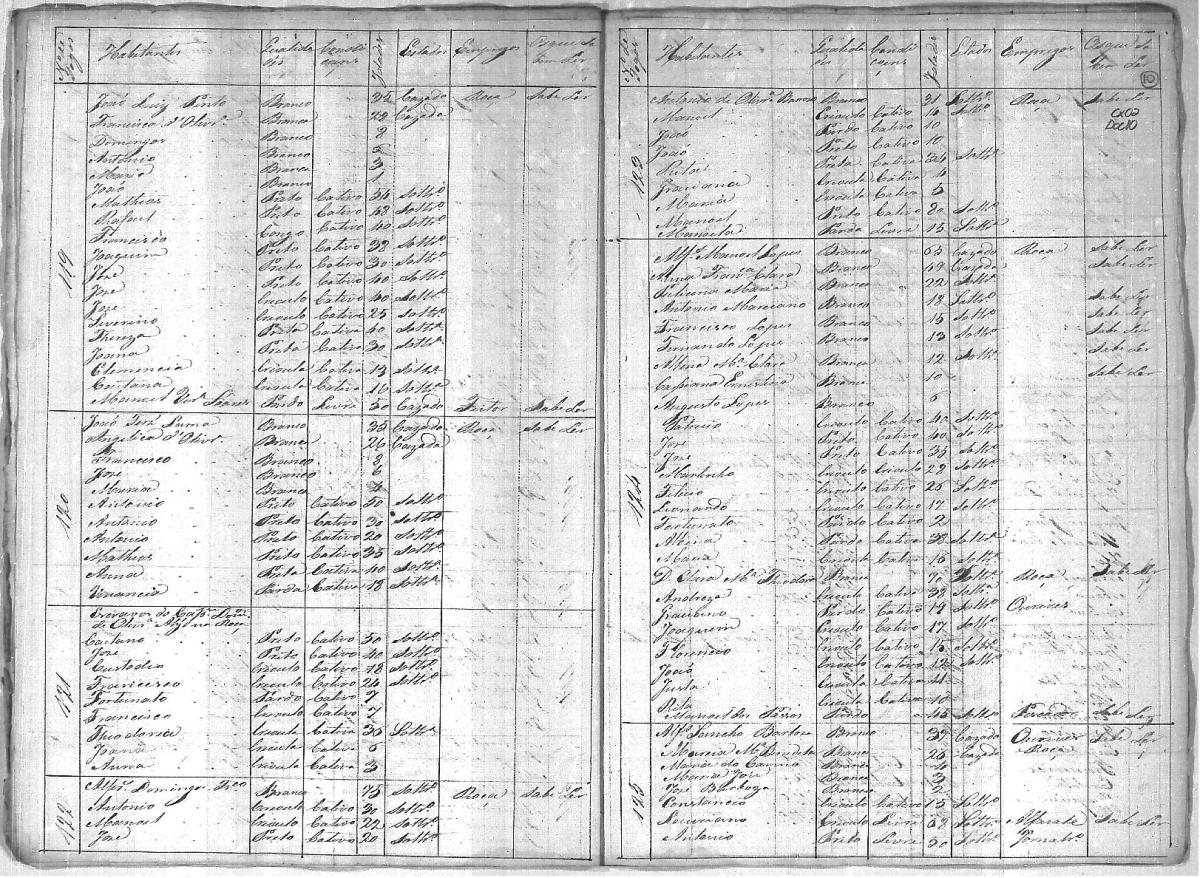 No de Fogos Habitantes Qualida des Condi çoens Idades Estados Empregos Os que Sa bem Ler
119
João Luiz Pinto Branco 35 Cazado Roça Sabe Ler
Francisca d'Olivr.a Branca 28 Cazada
Domingos Branco 8
Antonio Branco 5
Maria Branca 3
João Branco 1
Mathias Preto Cativo 54 Soltr.o
Rafael Preto Cativo 48 Soltr.o
Francisco Congo Cativo 40 Soltr.o
Joaquim Preto Cativo 38 Soltr.o
José Preto Cativo 30 Soltr.o
José Preto Cativo 40 Soltr.o
José Crioulo Cativo 40 Soltr.o
Severino Crioulo Cativo 25 Soltr.o
Thereza Preta Cativa 40 Soltr.a
Joana Preta Cativa 30 Soltr.a
Clemencia Crioula Cativa 13 Soltr.a
Caetana Crioula Cativa 16 Soltr.a
Manoel Soares Pardo Livre 50 Cazado Feitor Sabe Ler
120
João José Branco 35 Cazado Roça Sabe Ler
Angelica d'Olivr.a Branca 26 Cazada
Francisco Branco 8
José Branco 6
Maria Branca 4
Antonio Preto Cativo 50 Soltr.o
Antonio Preto Cativo 30 Soltr.o
Antonio Preto Cativo 20 Soltr.o
Mathias Preto Cativo 35 Soltr.o
Anna Preta Cativa 40 Soltr.a
Venancia Parda Cativa 18 Soltr.a
121
Escravos do Cap.m
de Olivr.a Roça
Caetano Preto Cativo 50 Soltr.o
José Preto Cativo 40 Soltr.o
Custodio Crioulo Cativo 18 Soltr.o
Francisco Crioulo Cativo 24 Soltr.o
Fortunato Pardo Cativo 7
Francisco Crioulo Cativo 7
Theodoria Crioula Cativa 35 Soltr.a
Joana Crioula Cativa 6
Anna Crioula Cativa 3
122
Alf.s Domingos Branco 75 Soltr.o Roça Sabe Ler
Antonio Crioulo Cativo 30 Soltr.o
Manoel Crioulo Cativo 22 Soltr.o
José Preto Cativo 20 Soltr.o
No de Fogos Habitantes Qualida des Condi çoens Idades Estados Empregos Os que Sa bem Ler
10
CX02
Doc10
123
Antonio de Olivr.a Branco 31 Soltr.o Roça Sabe Ler
Manoel Crioulo Cativo 16 Soltr.o
João Pardo Cativo 10
João Preto Cativo 12
Rita Preta Cativa 34 Soltr.a
Crioula Cativa 4
Maria Crioula Cativa 5
Manoel Preto Cativo 80 Soltr.o
Manoela Parda Livre 15 Soltr.a
124
Alf.s Manoel Lopes Branco 63 Cazado Roça Sabe Ler
Anna Fran.ca Clara Branca 49 Cazada Sabe Ler
Feliciana Maria Branca 22 Soltr.a
Antonio Marciano Branco 18 Soltr.o Sabe Ler
Francisco Lopes Branco 15 Soltr.o Sabe Ler
Fernando Lopes Branco 13 Soltr.o Sabe Ler
M.a Clara Branca 12 Soltr.a
Branca 10 Sabe Ler
Augusto Lopes Branco 6
Patricio Crioulo Cativo 40 Soltr.o
José Preto Cativo 40 Soltr.o
José Preto Cativo 35 Soltr.o
Martinho Crioulo Cativo 29 Soltr.o
Felicio Crioulo Cativo 25 Soltr.o
Leonardo Crioulo Cativo 17 Soltr.o
Fortunato Pardo Cativo 2
Parda Cativa 38 Soltr.a
Maria Crioula Cativa 16 Soltr.a
D. Clara M.a Theodora Branca 70 Soltr.a Roça Sabe Ler
Andreza Crioula Cativa 39 Soltr.a
Pardo Cativo 19 Soltr.o Ourives
Joaquim Crioulo Cativo 17 Soltr.o
Florencio Crioulo Cativo 15 Soltr.o
João Crioulo Cativo 12 Soltr.o
Justa Crioula Cativa 11
Rita Crioula Cativa 10
Manoel Pardo 45 Soltr.o Sabe Ler
125
Alf.s Barboza Branco 39 Cazado Ourives Sabe Ler
Maria M.a Branca 28 Cazada Roça
Maria do Carmo Branca 4
Maria José Branca 3
José Barboza Branco 2
Constancio Crioulo Cativo 15 Soltr.o
Crioulo Livre 68 Soltr.o Alfaiate Sabe Ler
Antonio Preto Livre 50 Soltr.o Jornalr.o